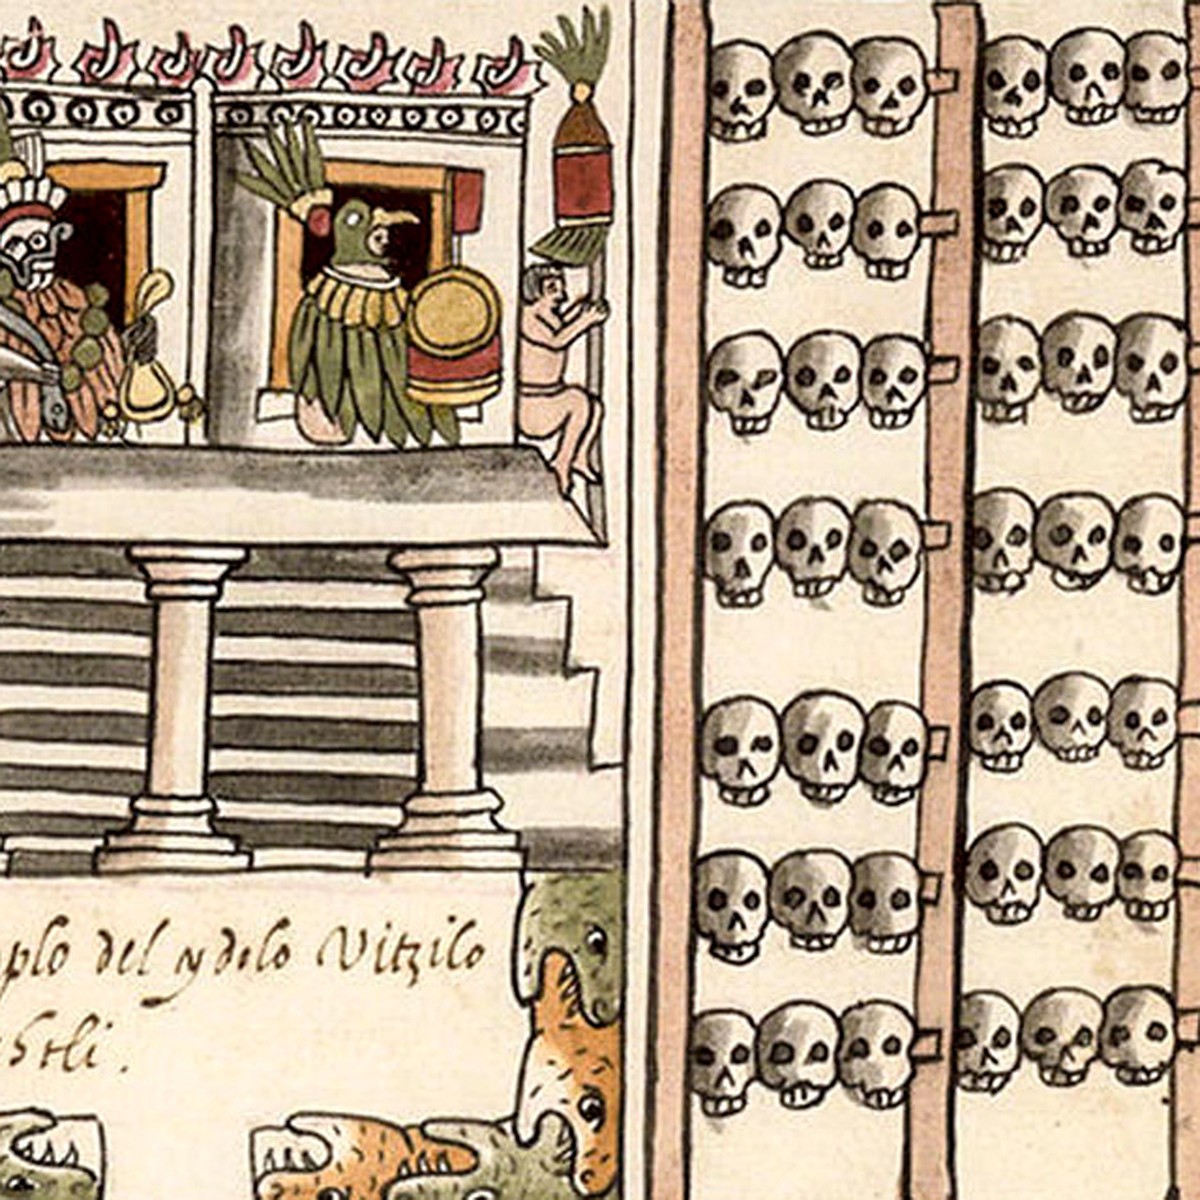 plo del ydolo Vitzilo